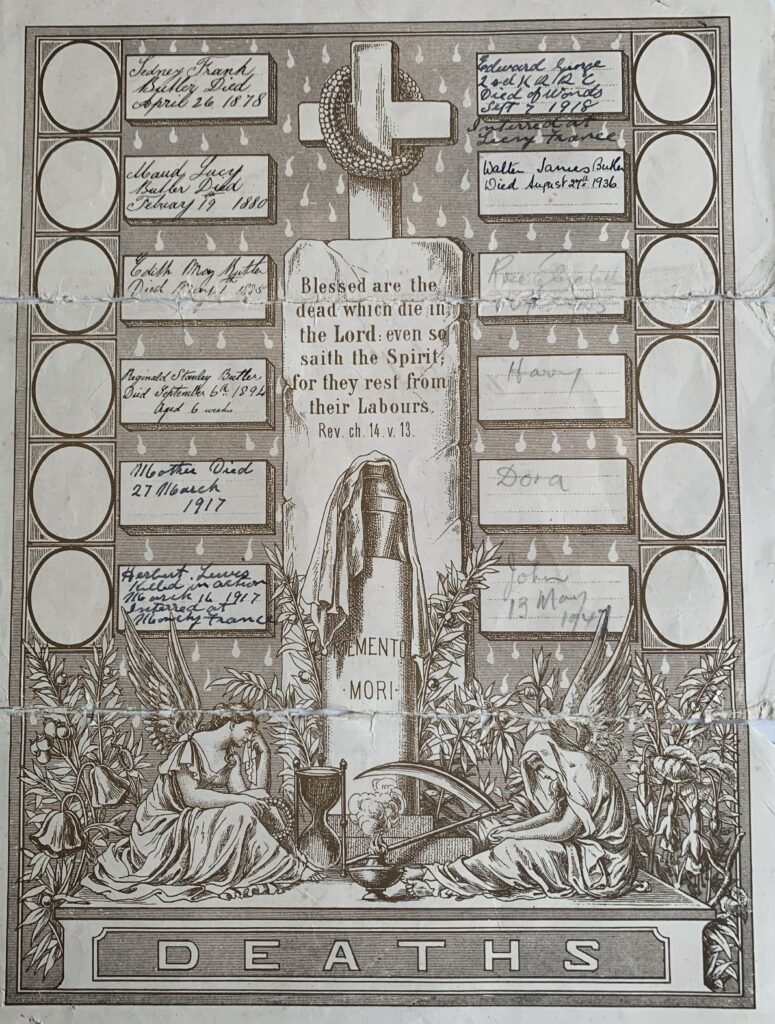 Sedney Frank
Butler Died
April 26 1878
Maud Lucy
Butler Died
Febuary 19 1880
Edith May Butler
Died May 1st
Reginald Stanley Butler
Died September 6th 1894
Aged 6 weeks
Mother Died
27 March
1917
Herbert Lewis
Killed in action
March 16 1917
Interred at
Monchy France
Blessed are the
dead which die in
the Lord: even so
saith the Spirit;
for they rest from
their Labours.
Rev. ch. 14. v. 13.
MEMENTO
·MORI·
Edward George
2nd K R R C
Died of Wonds
Sept 7 1918
Interred at
France
Walter James Butler
Died August 27th 1936
Rose
Harry
Dora
John
13 May
1947
DEATHS